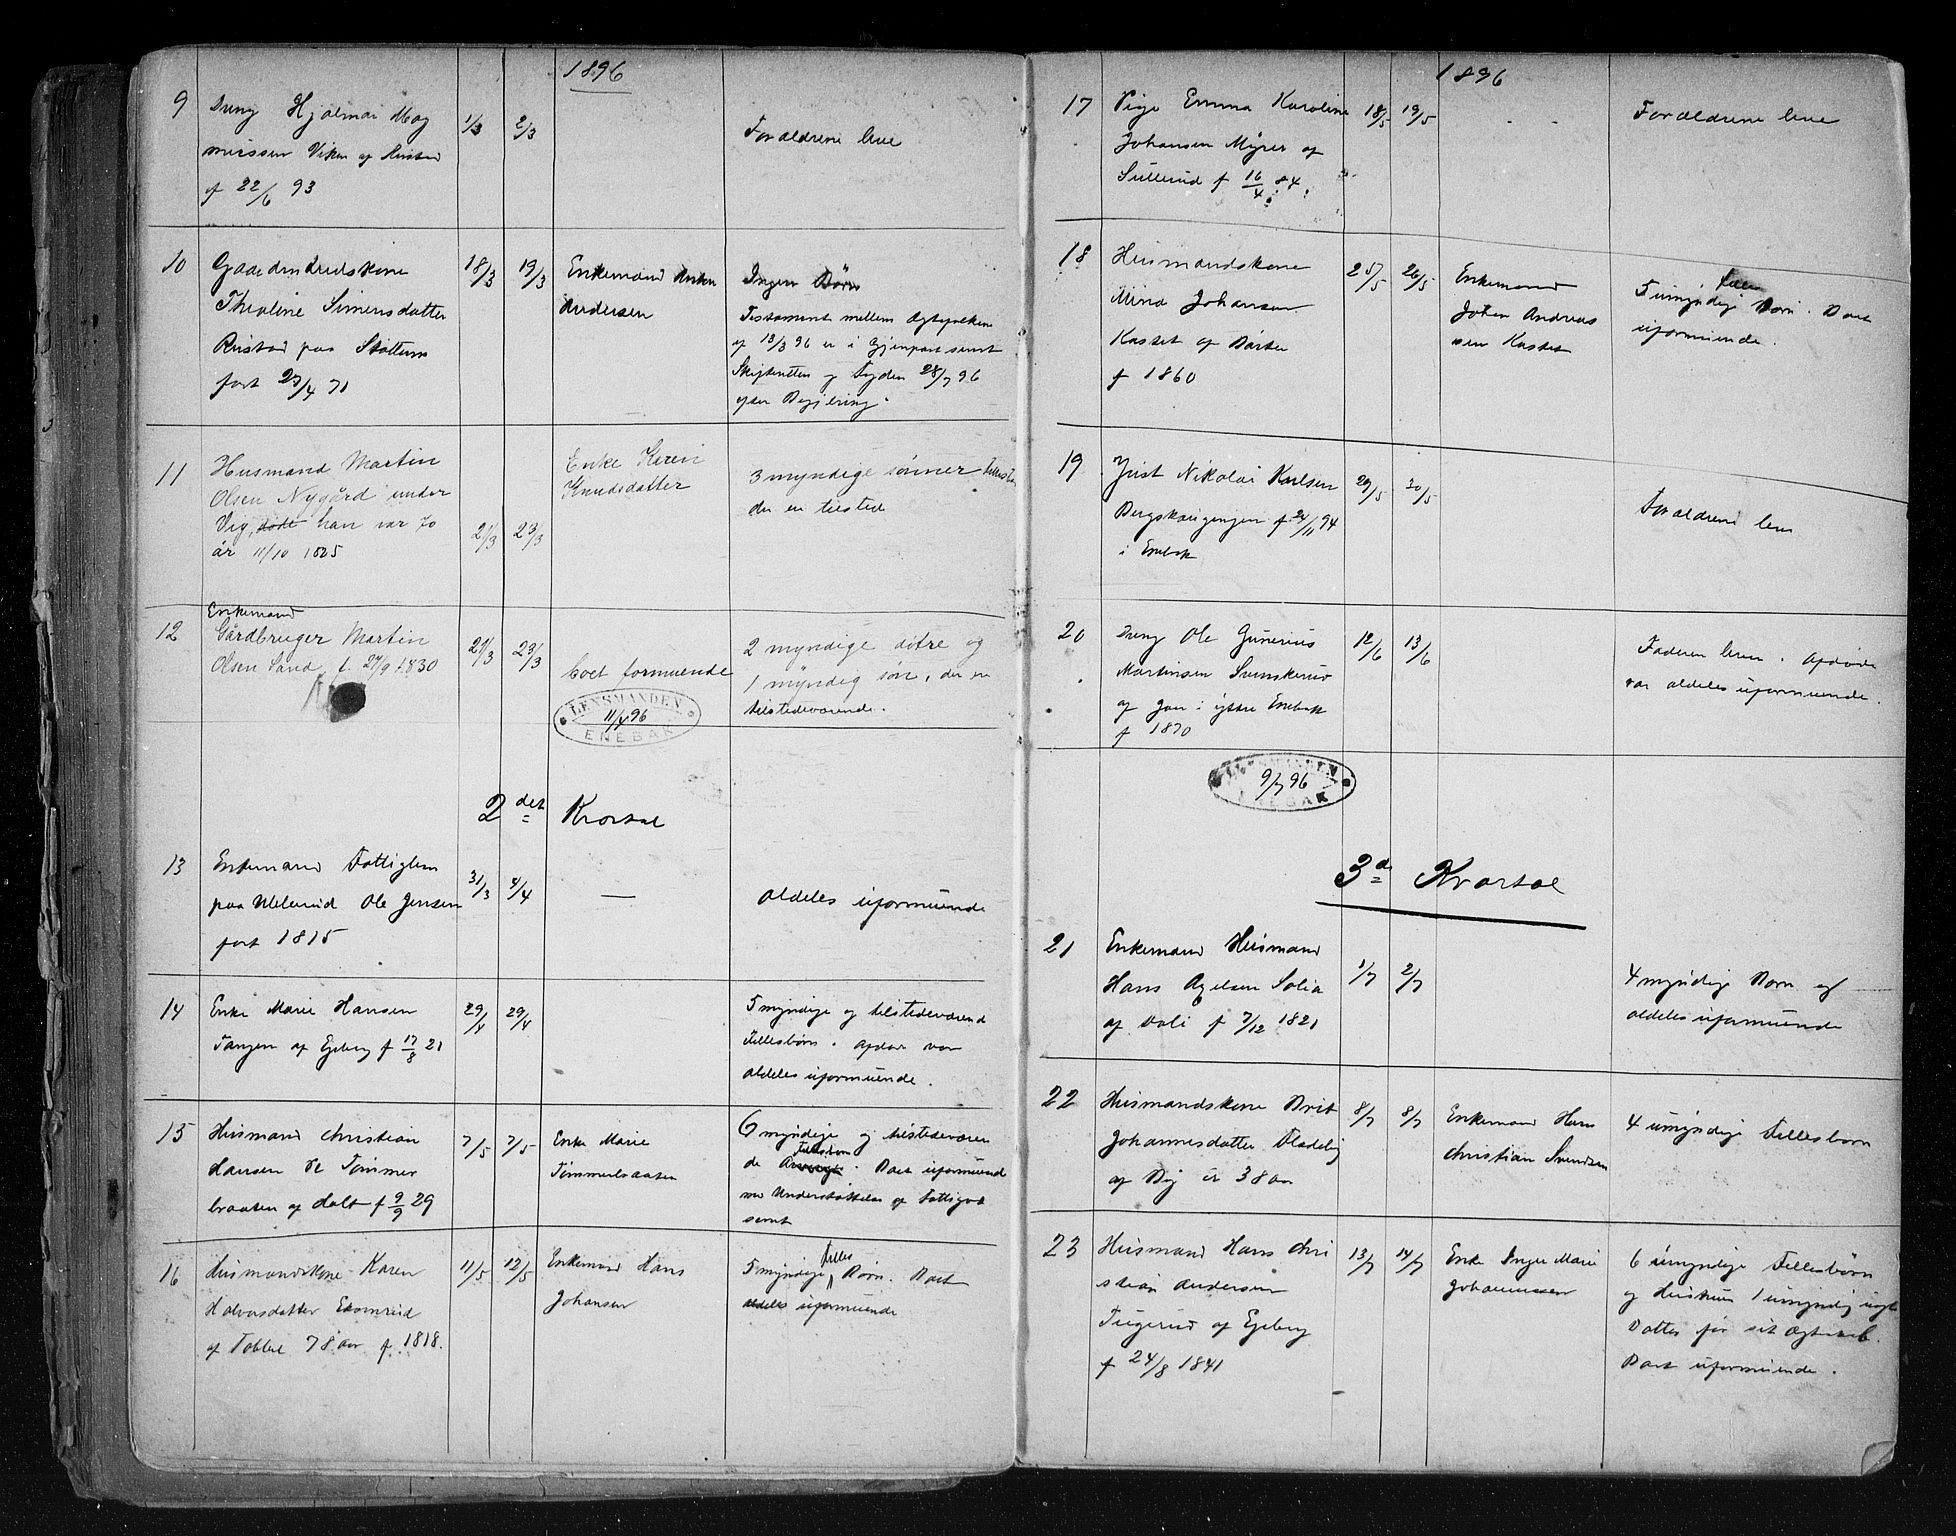 1896
9 Dreng Hjalmar Mag 1/3 2/3 Forældrene leve
nussen Viken af Rustad
f 22/6 93
10 Gaardmandskone 18/3 19/3 Enkemand Anders Ingen Børn
Theoline Simensdatter Andersen Testament mellem Ægtefolkene
Rustad paa Støttum af 13/3 96 er i Gjenpart sendt
født 23/4 71 Skifteretten og Fogden 28/7 96
efter Begjæring.
11 Husmand Martin 21/3 23/3 Enke Karen 3 myndige sønner
Olsen Nygård under Knudsdatter der er tilstede
Vig, døde han var 70
år 11/10 1825
Enkemand
12 Gårdbruger Martin 21/3 23/3 2 myndige døtre og
Olsen Sand f. 27/9 1830 boet formuende 1 myndig søn, der er
tilstedeværende.
LENSMANDEN
11/4 96
ENEBAK
2det Kvartal
13 Enkemand Fattiglem 31/3 4/4 — aldeles uformuende
paa Ole Jensen
født 1815
14 Enke Marie Hansen 29/4 29/4 5 myndige og tilstedeværende
Tangen af Ekeberg f 17/8 21 Fellesbørn. Afdøde var
aldeles uformuende.
15 Husmand Christian 7/5 7/5 Enke Marie 6 myndige og tilstedeværen
Hansen Tømmer Tømmerbraaten de Fellesbørn. Boet uformuende
braaten af dalt f 9/9 29 Understøttelse af Fattigvæ
senet
16 Husmandskone Karen 11/5 12/5 Enkemand Hans 5 myndige felles Børn. Boet
Halvorsdatter Ekornrud Johansen aldeles uformuende
af 78 aar f 1818.
1896
17 Pige Emma Karoline 18/5 19/5 Forældrene leve
Johansen Myrer af
Sullerud f 16/4 84.
18 Husmandskone 25/5 26/5 Enkemand 5 umyndige felles Børn. Boet
Mina Johansen Johan Andreas uformuende.
Kastet af Børter sen Kastet
f 1860
19 Just Nikolai Karlsen 29/5 30/5 Forældrene leve
Bergskaugengen f 24/11 94
i Enebak
20 Dreng Ole Gunerius 12/6 13/6 Faderen lever. Afdøde
Martinsen Svenskerud var aldeles uformuende
af Gran i ytre Enebak
f 1870
LENSMANDEN
9/7 96
ENEBAK
3d Kvartal
21 Enkemand Husmand 1/7 2/7 4 myndige Børn og
Hans Axelsen Solia aldeles uformuende
af Dali f 7/12 1821
22 Husmandskone Brit 8/7 8/7 Enkemand Hans 4 umyndige Fellesbørn
Johannesdatter Fladeby Christian Svendsen
af 38 aar
23 Husmand Hans Chri 13/7 14/7 Enke Inger Marie 6 umyndige Fellesbørn
stian Andersen Johannessen og Huskun 1 umyndig
Tugerud af Ekeberg Datter før sit Ægteskab.
f 24/8 1841 Boet uformuende.